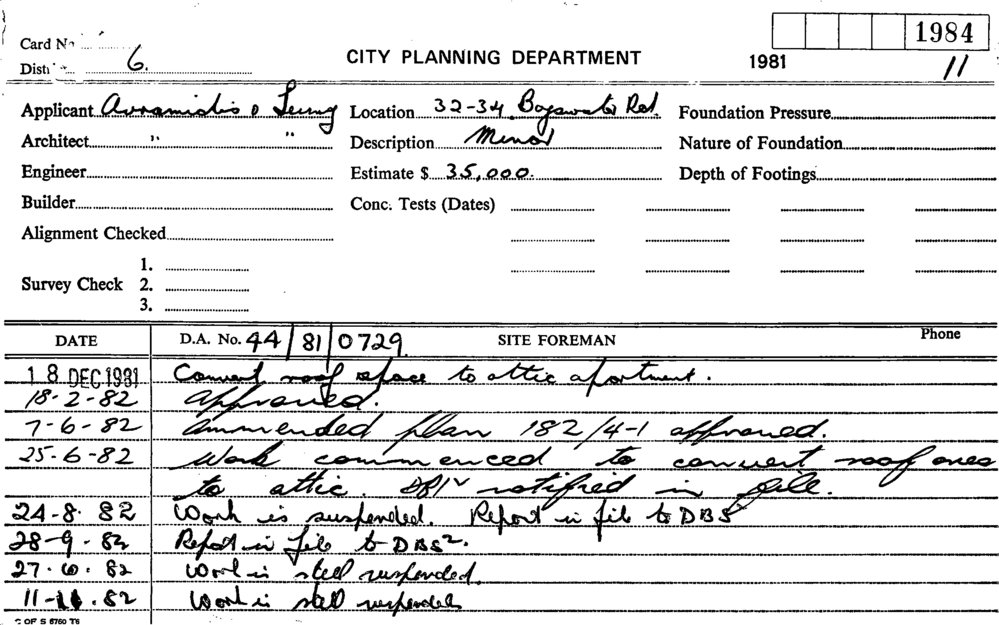 1984
Card No
CITY PLANNING DEPARTMENT
1981
11
Dist 6.
Applicant Avramidis & Leung Location 32-34 Bayswater Rd. Foundation Pressure
Architect " " Description Minor Nature of Foundation
Engineer Estimate $ 35,000. Depth of Footings
Builder Conc. Tests (Dates)
Alignment Checked
1.
Survey Check 2.
3.
DATE D.A. No. 44/81/0729 SITE FOREMAN Phone
18 DEC 1981 Convert roof space to attic apartment.
18-2-82 approved.
7-6-82 Ammended plan 182/4-1 approved.
25-6-82 Work commenced to convert roof area
to attic. notified in file.
24-8-82 Work is suspended. Report in file to DBS
28-9-82 Report in file to DBS².
82 Work is still suspended.
82 Work is still suspended
OF S 6760 T6